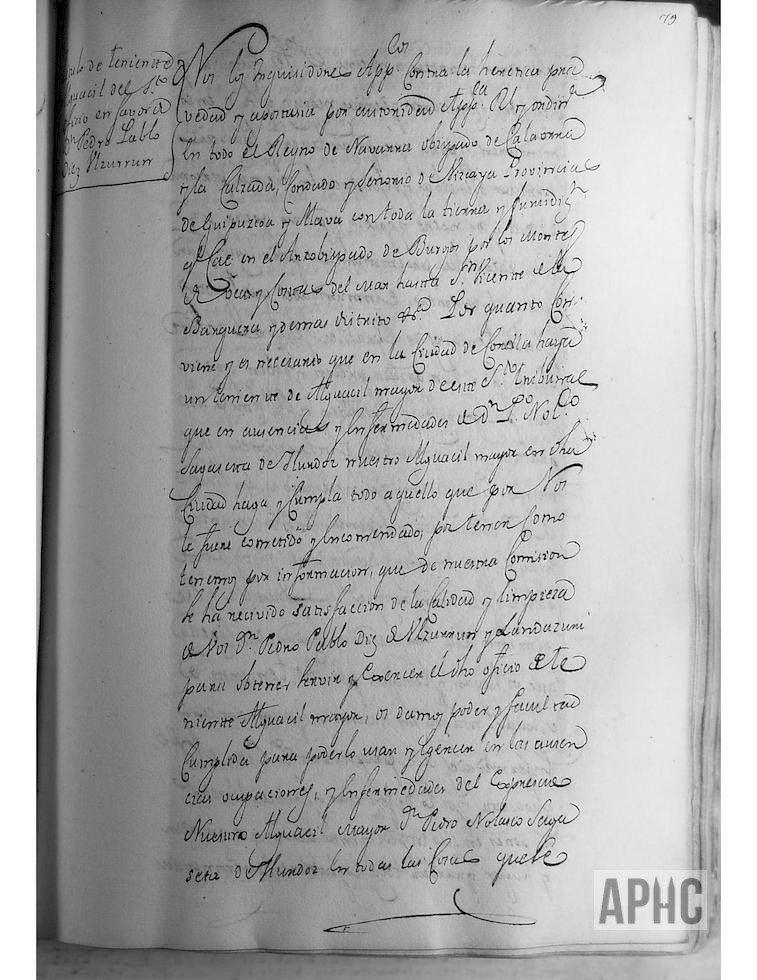 79
tulo de teniente
Alguacil del S.to
oficio en favor de
Dn Pedro Pablo
Diez Ulzurrun
Nos los Inquisidores App.cos Contra la heretica pra
vedad y apostasia por autoridad App.ca Rl y ordin.a
En todo el Reyno de Navarra obispado de Calaorra
y la Calzada, Condado y Senorio de Vizcaya Provincias
de Guipuzcoa y Alava con toda la tierra y Jurisdi.n
q.e Cae en el Arzobispado de Burgos por los Montes
de Oca y Costas del Mar hasta Sn Vicente de la
Barquera y demas distrito &.a Por quanto Con
viene y es necesario que en la Ciudad de Corella haya
un teniente de Alguacil mayor de este S.to tribunal
que en ausencias y Enfermedades de dn P.o Nol.co
Sagaseta de Ilurdoz nuestro Alguacil mayor en dha
Ciudad haga y Cumpla todo aquello que por Nos
le fuere cometido y Encomendado; por tener Como
tenemos por informacion, que de nuestra Comision
se ha recivido satisfaccion de la Calidad y limpieza
de Vos Dn Pedro Pablo Diez de Ulzurrun y Landazuri
para obtener servir y Exercer el dho oficio de te
niente Alguacil mayor, os damos poder y facultad
Cumplida para poderlo usar y Egercer en las ausen
cias ocupaciones, y Enfermedades del Expresado
Nuestro Alguacil Mayor Dn Pedro Nolasco Saga
seta de Ilurdoz En todas las Cosas que se
APHC